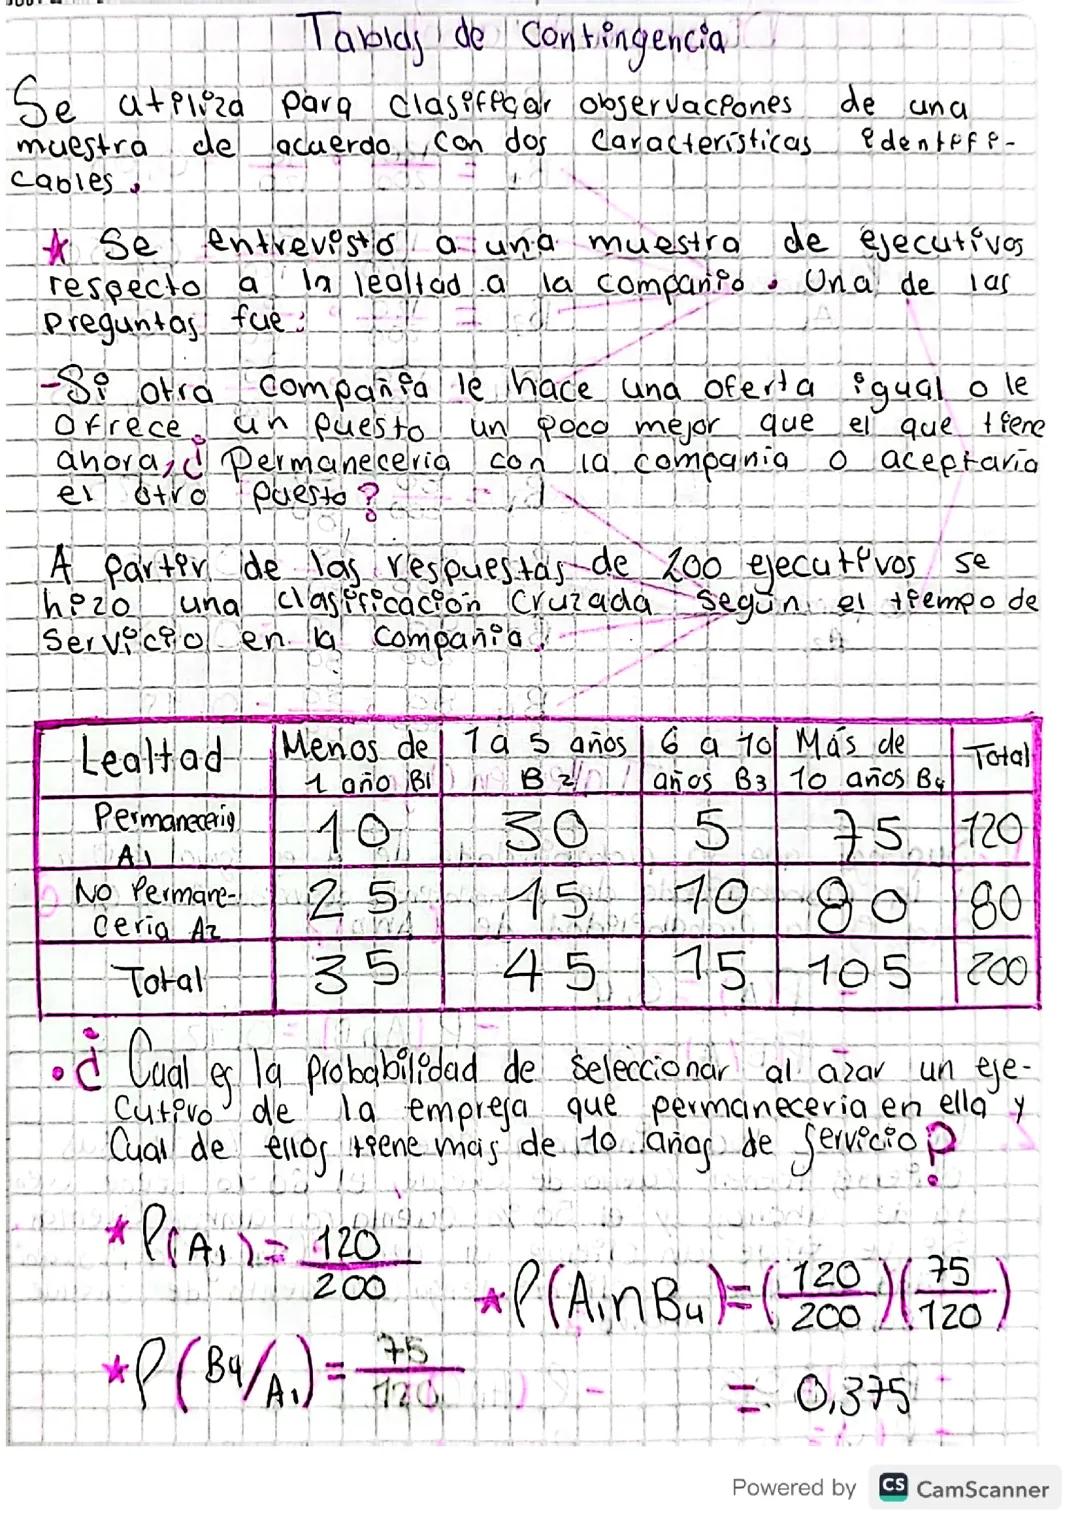 Tablas de Contingencia
Se utiliza para clasificar observaciones de una
muestra de acuerdo con dos características identifi-
cables.
* Se entrevisto a una muestra de ejecutivos
respecto a la lealtad a la compañio. Una de las
preguntas fue:
-Si otra compañia le hace una oferta igual o le
Ofrece un puesto un poco mejor que el que tiene
ahora, ¿ Permaneceria con la compania o aceptaria
el otro puesto?
A partir de las respuestas de 200 ejecutivos se
hizo una clasificacion cruzada según el tiempo de
Servicio en la Compañia.
Lealtad Menos de 1 año B1 1 a 5 años B2 6 a 10 años B3 Más de 10 años B4 Total
Permaneceria A1 10 30 5 75 120
No Permane-ceria A2 25 15 10 80 80
Total 35 45 15 105 200
• ¿ Cual es la probabilidad de seleccionar al azar un eje-
cutivo de la empresa que permaneceria en ella y
Cual de ellos tiene mas de 10 años de servicio?
* P(A1) = 120/200
* P(A1∩B4) = (120/200)(75/120)
* P(B4/A1) = 75/120
= 0,375
Powered by CS CamScanner